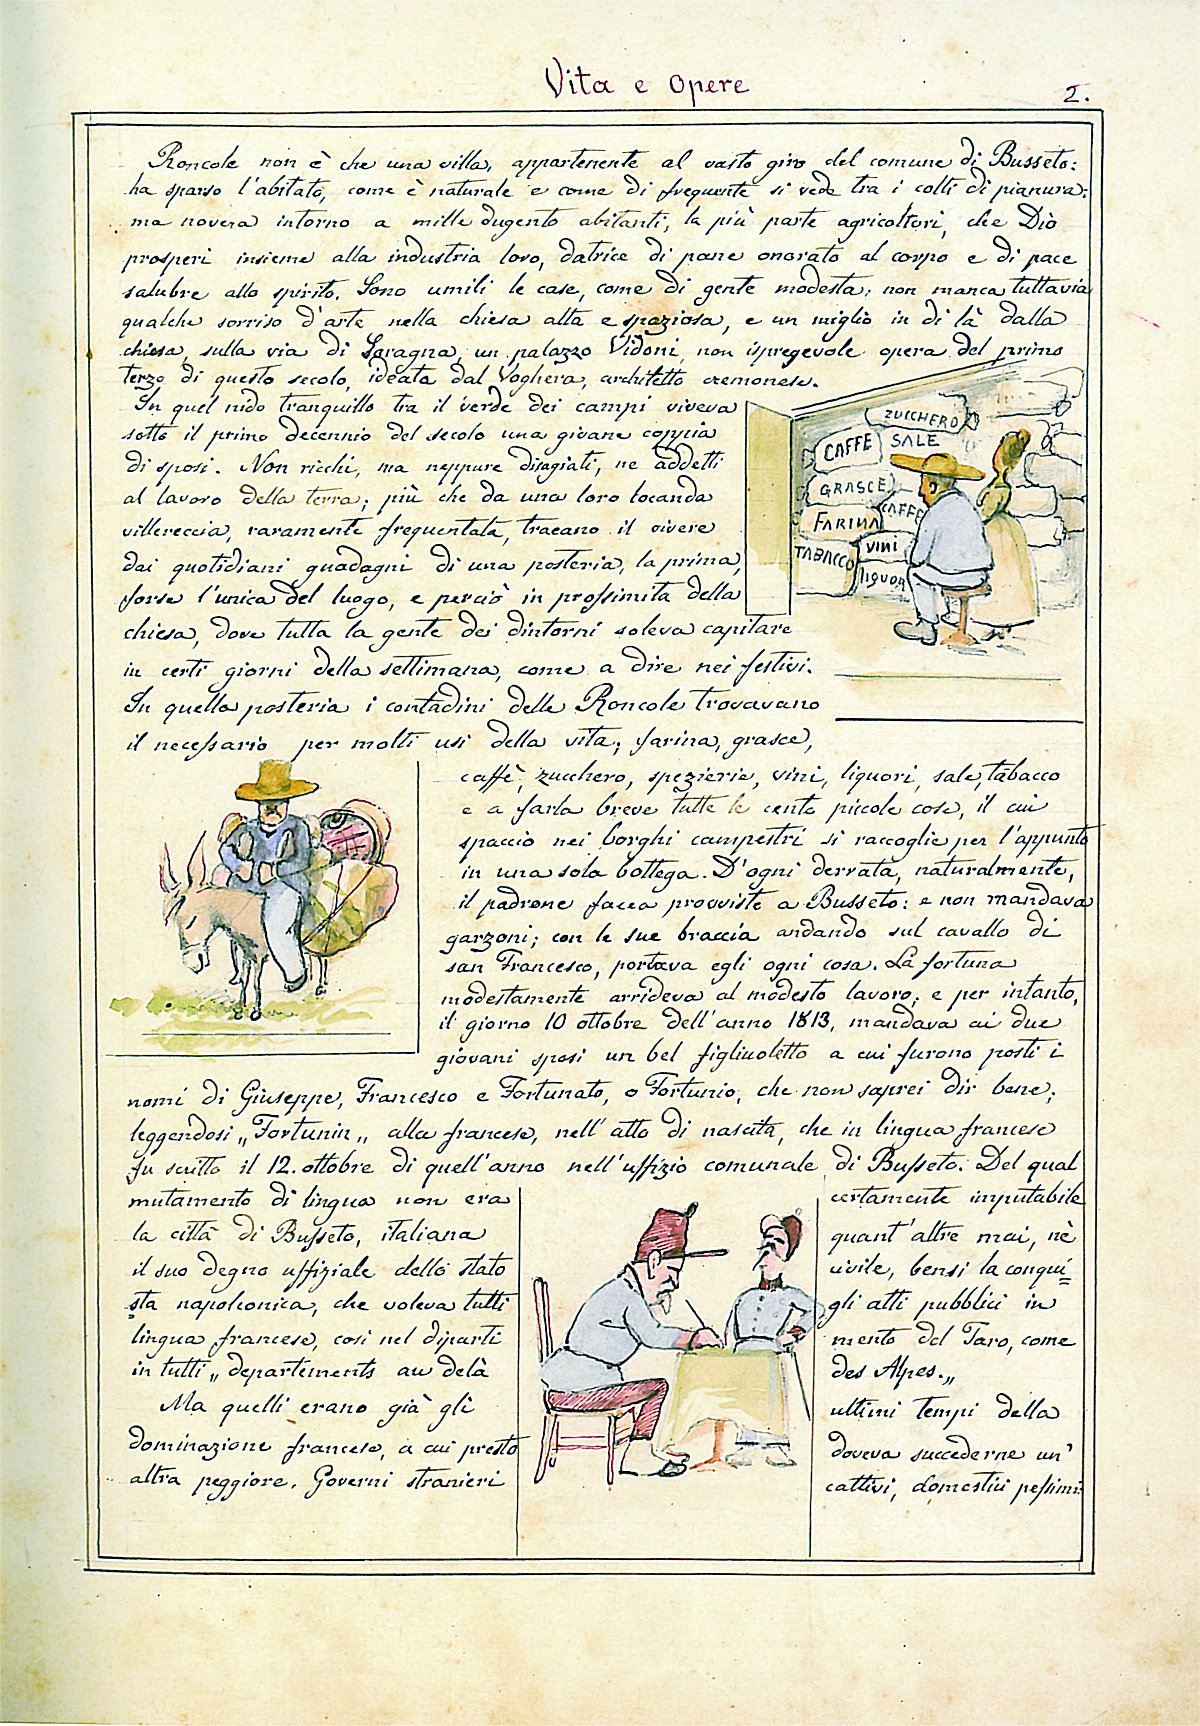 Vita e Opere
2.
Roncole non è che una villa, appartenente al vasto giro del comune di Busseto:
ha sparso l'abitato, come è naturale e come di frequente si vede tra i colti di pianura:
ma novera intorno a mille dugento abitanti, la più parte agricoltori, che Dio
prosperi insieme alla industria loro, datrice di pane onorato al corpo e di pace
salubre allo spirito. Sono umili le case, come di gente modesta; non manca tuttavia
qualche sorriso d'arte nella chiesa alta e spaziosa, e un miglio in di là dalla
chiesa, sulla via di Soragna, un palazzo Vidoni, non ispregevole opera del primo
terzo di questo secolo, ideata dal Voghera, architetto cremonese.
In quel nido tranquillo tra il verde dei campi viveva
sotto il primo decennio del secolo una giovane coppia
di sposi. Non ricchi, ma neppure disagiati, ne addetti
al lavoro della terra; più che da una loro locanda
villereccia, raramente frequentata, traeano il vivere
dai quotidiani guadagni di una posteria, la prima,
forse l'unica del luogo, e perciò in prossimità della
chiesa, dove tutta la gente dei dintorni soleva capitare
in certi giorni della settimana, come a dire nei festivi.
In quella posteria i contadini delle Roncole trovavano
il necessario per molti usi della vita; farina, grasce,
ZUCCHERO
CAFFE
SALE
GRASCE
CAFFE
FARINA
VINI
TABACCO
liquor
caffè, zucchero, spezierie, vini, liquori, sale, tabacco
e a farla breve tutte le cento piccole cose, il cui
spaccio nei borghi campestri si raccoglie per l'appunto
in una sola bottega. D'ogni derrata, naturalmente,
il padrone facea provviste a Busseto: e non mandava
garzoni; con le sue braccia andando sul cavallo di
san Francesco, portava egli ogni cosa. La fortuna
modestamente arrideva al modesto lavoro; e per intanto,
il giorno 10 ottobre dell'anno 1813, mandava ai due
giovani sposi un bel figliuoletto a cui furono posti i
nomi di Giuseppe, Francesco e Fortunato, o Fortunio, che non saprei dir bene;
leggendosi „Fortunin„ alla francese, nell'atto di nascita, che in lingua francese
fu scritto il 12. ottobre di quell'anno nell'uffizio comunale di Busseto. Del qual
mutamento di lingua non era certamente imputabile
la città di Busseto, italiana quant'altre mai, nè
il suo degno uffiziale dello stato civile, bensi la conqui=
sta napoleonica, che voleva tutti gli atti pubblici in
lingua francese, cosi nel diparti mento del Taro, come
in tutti „departements au delà des Alpes.„
Ma quelli erano già gli ultimi tempi della
dominazione francese, a cui presto doveva succederne un'
altra peggiore. Governi stranieri cattivi, domestici pessimi: